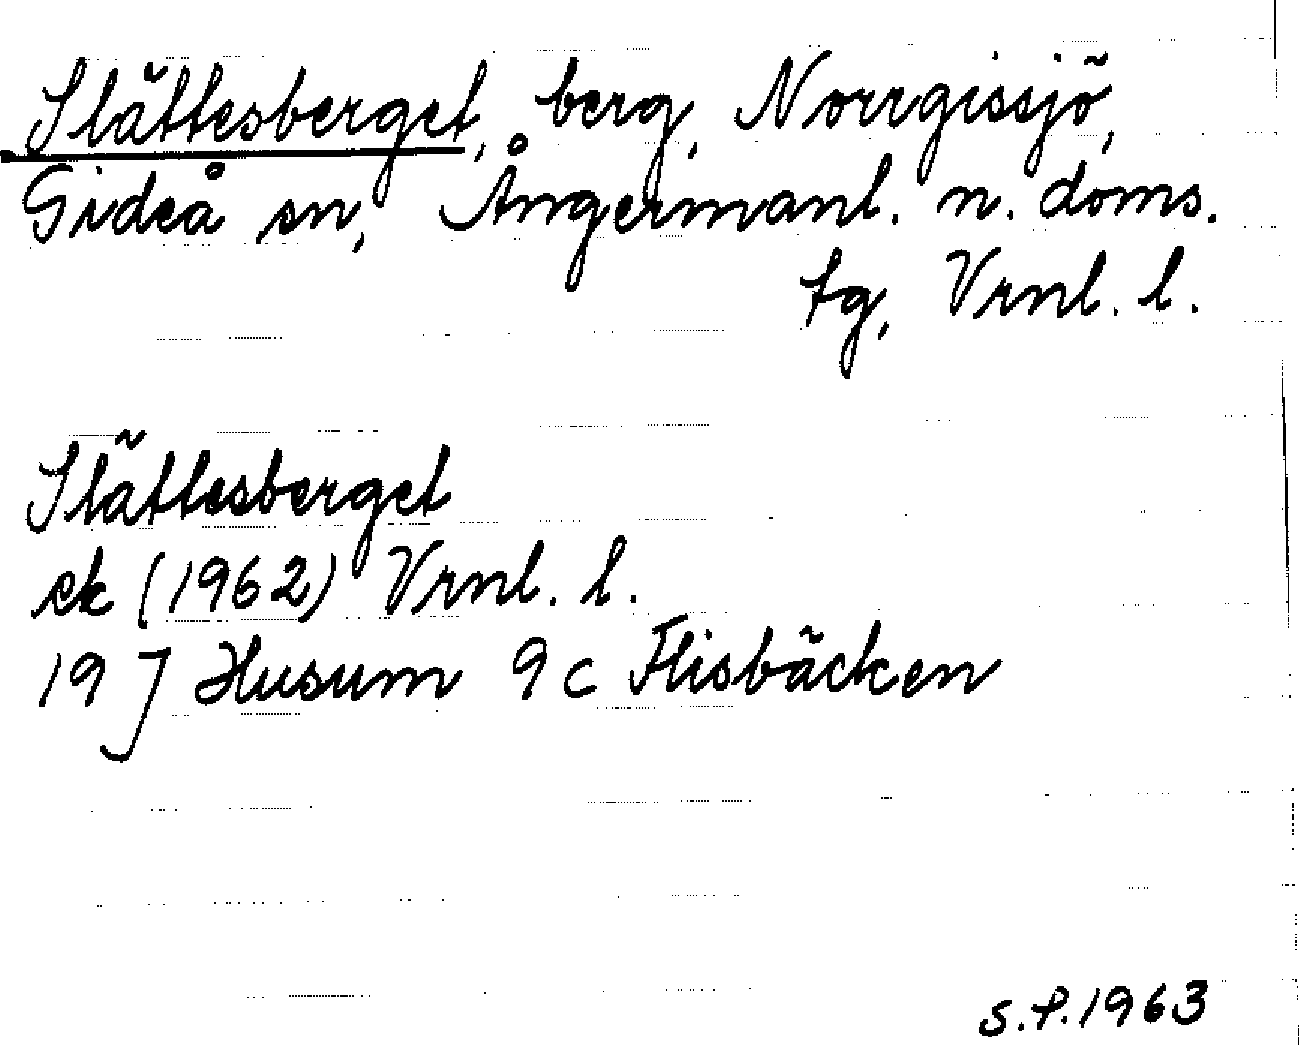 Slättesberget, berg, Norrgissjö,
Gideå sn, Ångermanl. n. doms.
tg, Vrnl. l.
Slättesberget
ek (1962) Vrnl. l.
19 J Husum 9 c Flisbäcken
S.P. 1963